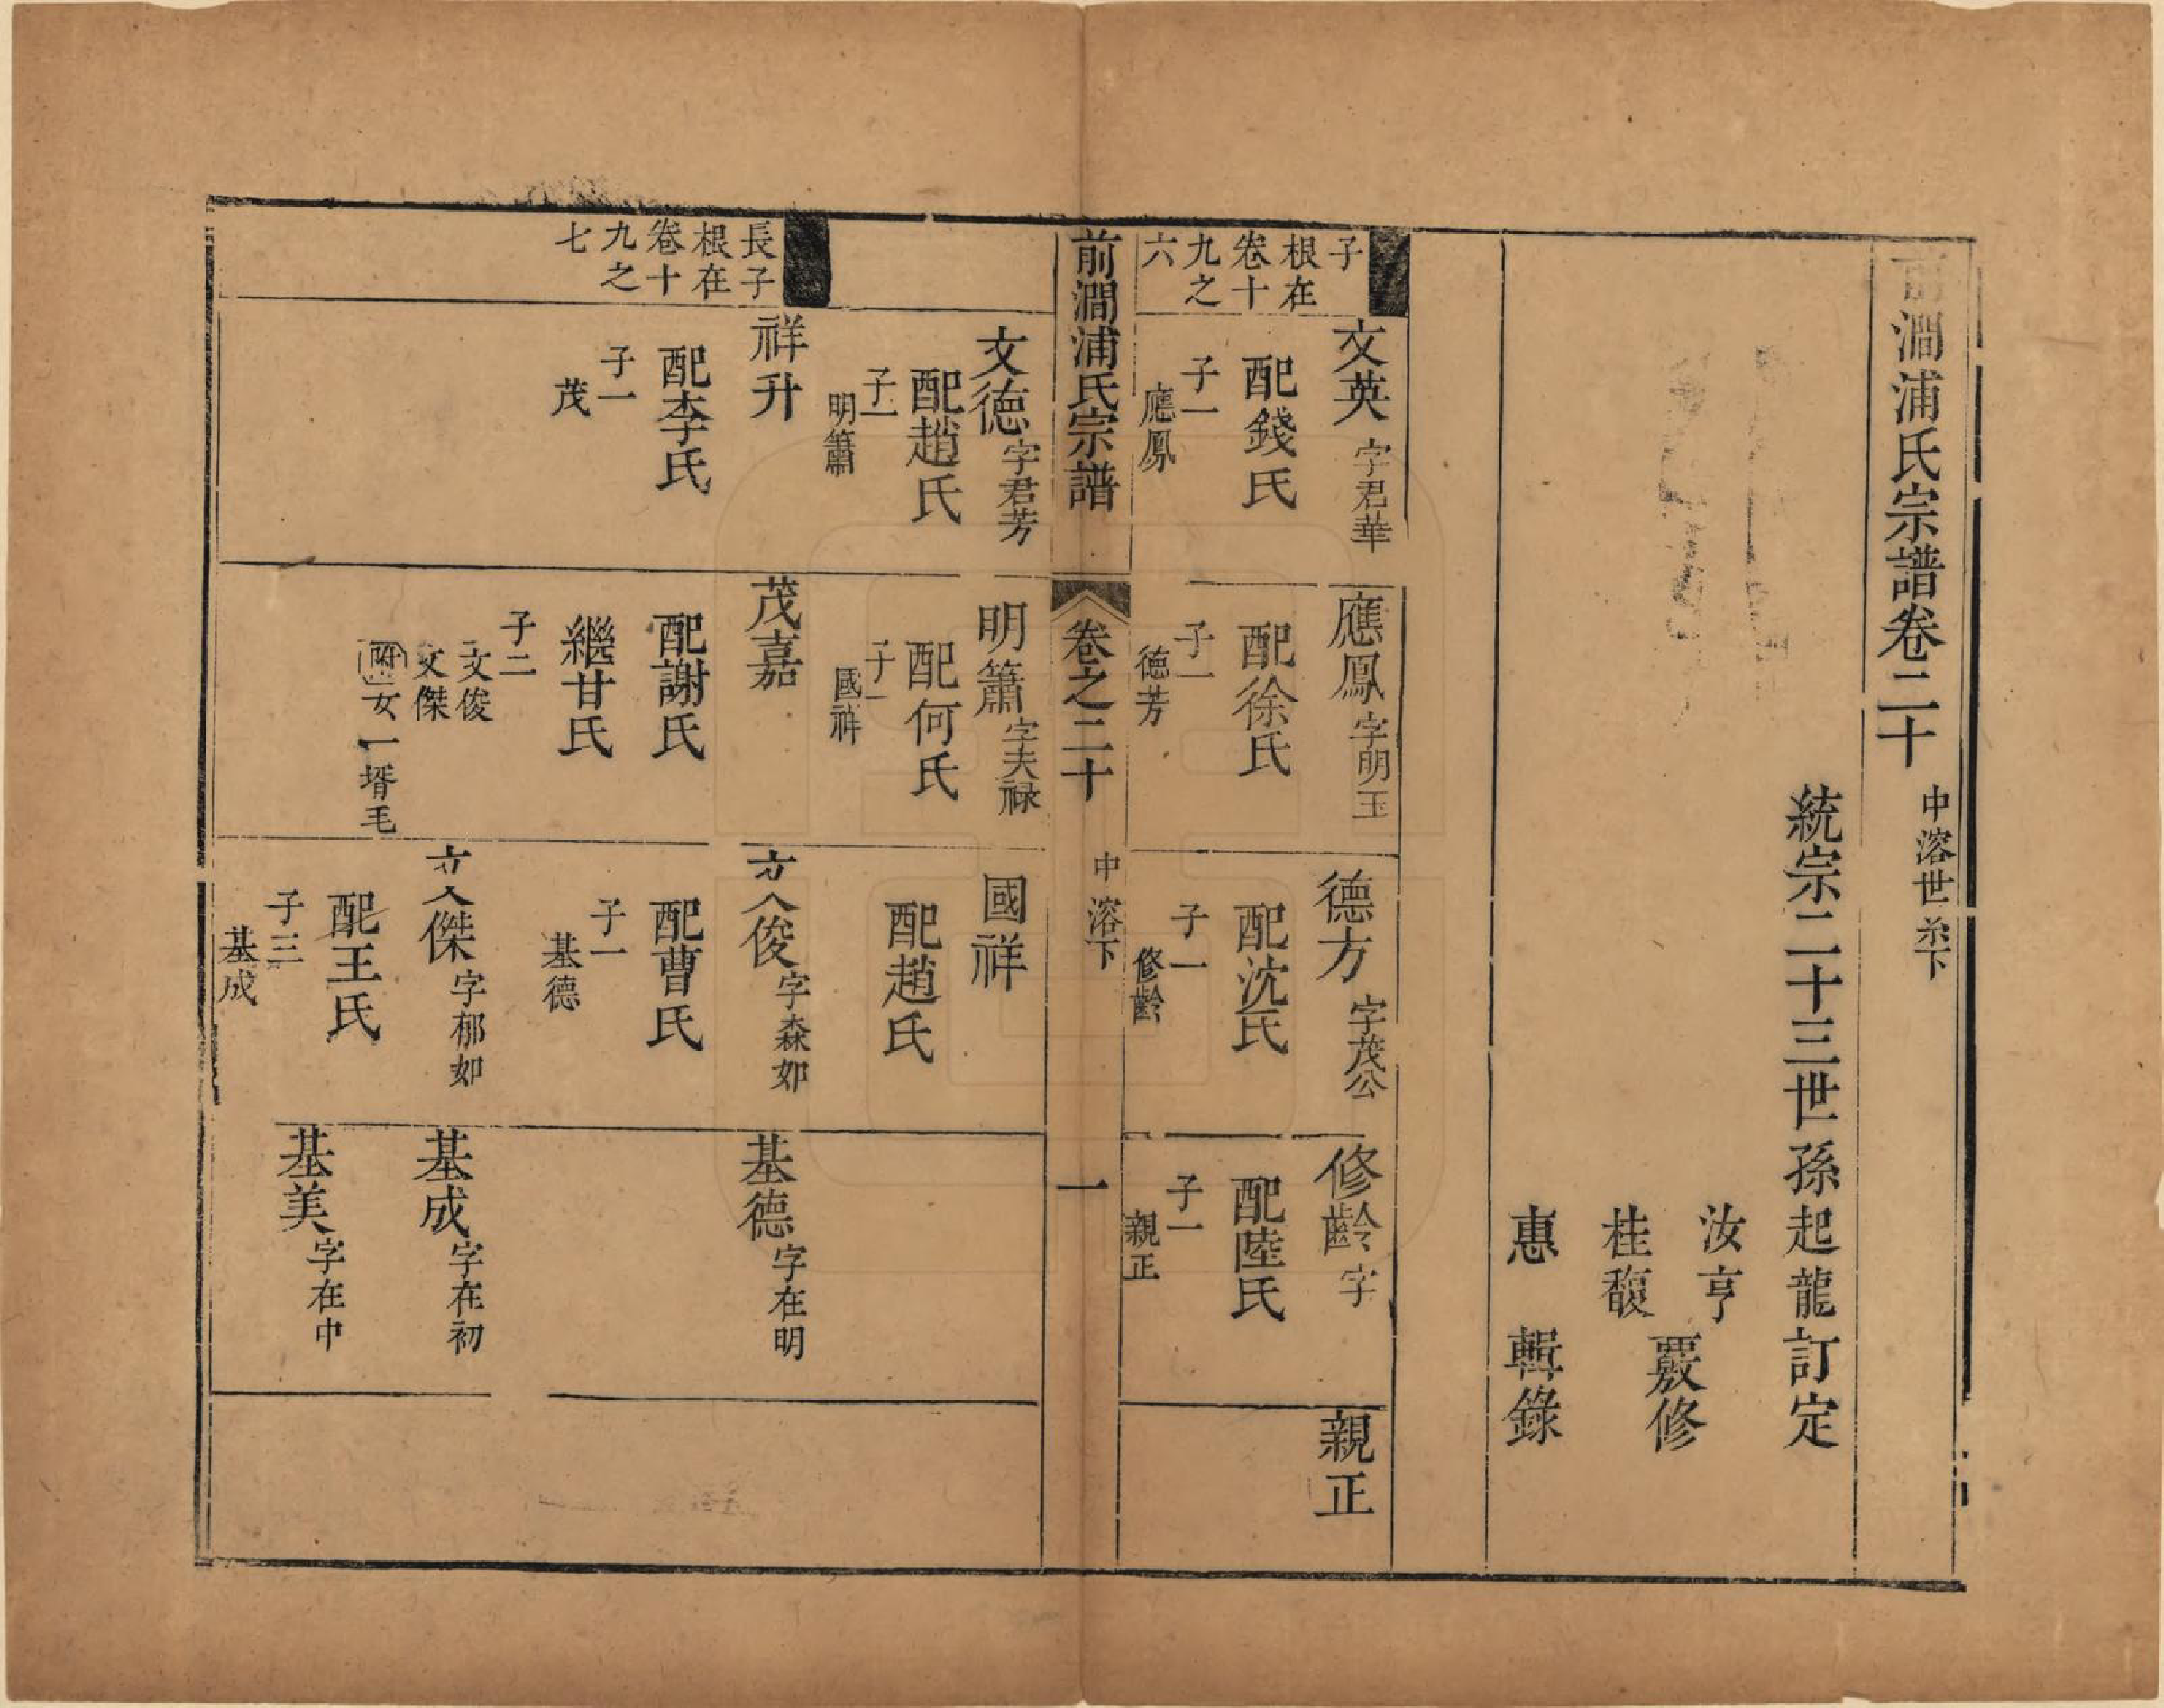 前澗浦氏宗譜卷二十
中溶世系下
統宗二十三世孫起龍訂定
汝亨
桂馥
覈修
惠 輯錄
子
根在
卷十
九之
六
文英字君華
配錢氏
子一
應鳳
應鳳字明玉
配徐氏
子一
德芳
德方字茂公
配沈氏
子一
修齡
修齡字
配陸氏
子一
親正
親正
前澗浦氏宗譜
卷之二十
中溶下
一
文德字君芳
配趙氏
子一
明簫
明簫字夫禄
配何氏
子一
國祥
國祥
配趙氏
長子
根在
卷十
九之
七
祥升
配李氏
子一
茂
茂嘉
配謝氏
繼甘氏
子二
文俊
文傑
女一壻毛
文俊字森如
配曹氏
子一
基德
基德字在明
文傑字郁如
配王氏
子三
基成
基成字在初
基美字在中